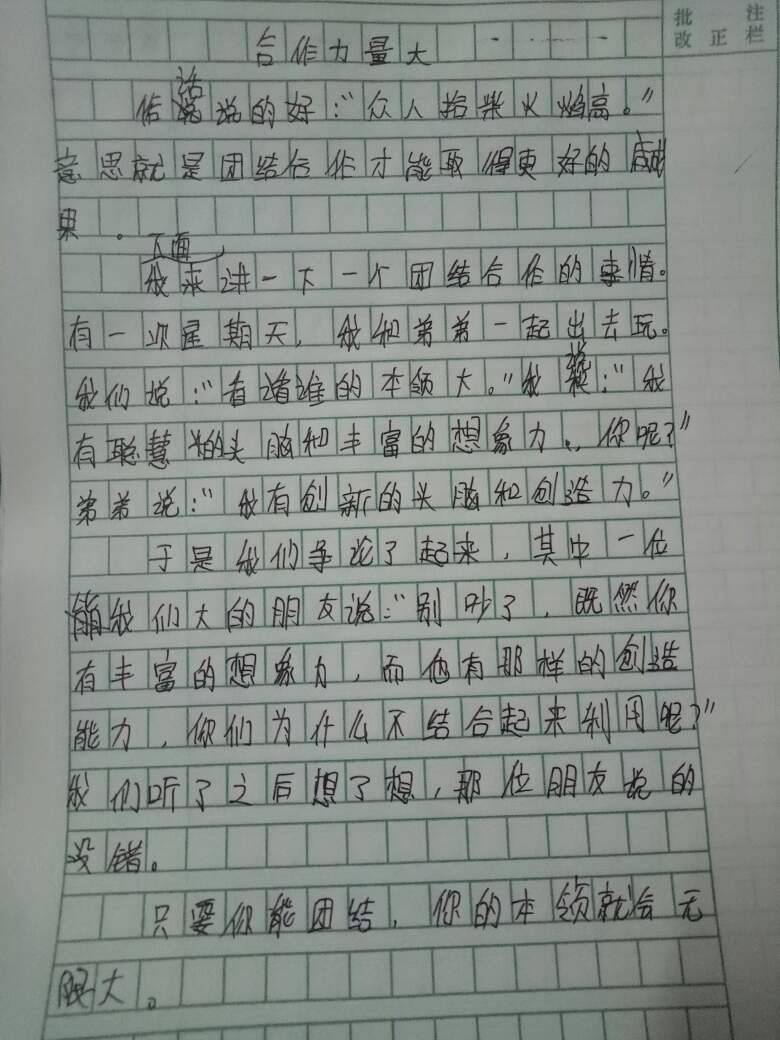 批 注
改 正 栏
合作力量大
俗话说的好：“众人拾柴火焰高。”
意思就是团结合作才能取得更好的成
果。
下面
我来讲一下一个团结合作的事情。
有一次星期天，我和弟弟一起出去玩。
我们说：“看谁的本领大。”我说：“我
有聪慧的头脑和丰富的想象力，你呢？”
弟弟说：“我有创新的头脑和创造力。”
于是我们争论了起来，其中一位
我们大的朋友说：“别吵了，既然你
有丰富的想象力，而他有那样的创造
能力，你们为什么不结合起来利用呢？”
我们听了之后想了想，那位朋友说的
没错。
只要你能团结，你的本领就会无
限大。